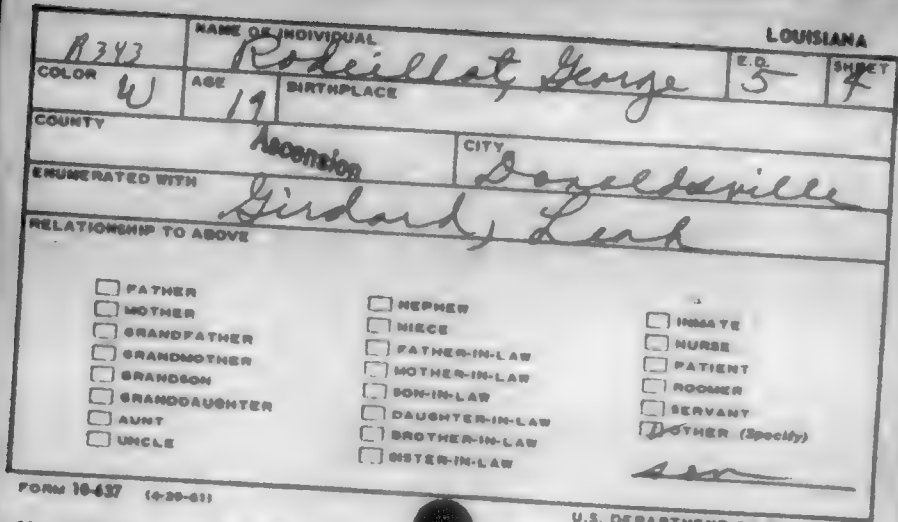 LOUISIANA
R343
NAME OF INDIVIDUAL
Rodeillat, George
E.D.
5
SHEET
4
COLOR
W
AGE
19
BIRTHPLACE
COUNTY
Ascension
CITY
Donaldsville
ENUMERATED WITH
Girdard, Leah
RELATIONSHIP TO ABOVE
FATHER
MOTHER
GRANDFATHER
GRANDMOTHER
GRANDSON
GRANDDAUGHTER
AUNT
UNCLE
NEPHEW
NIECE
FATHER-IN-LAW
MOTHER-IN-LAW
SON-IN-LAW
DAUGHTER-IN-LAW
BROTHER-IN-LAW
SISTER-IN-LAW
INMATE
NURSE
PATIENT
ROOMER
SERVANT
OTHER (Specify)
son
FORM 10-637 (4-20-61)
U.S. DEPARTMENT